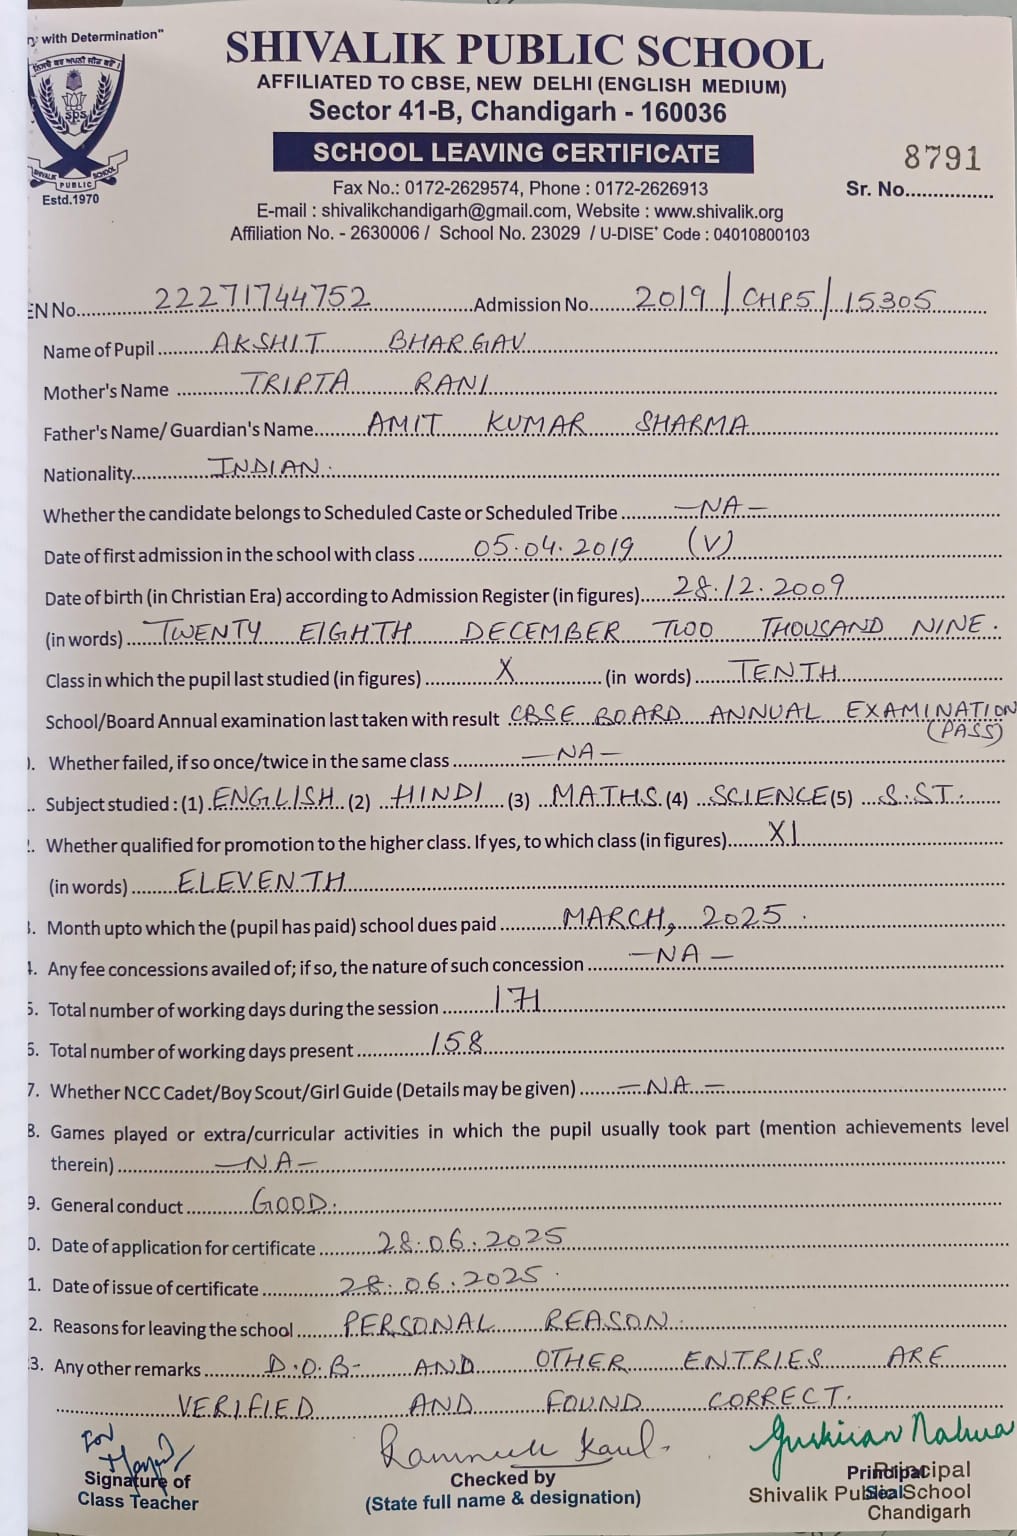 y with Determination"
SHIVALIK PUBLIC SCHOOL
AFFILIATED TO CBSE, NEW DELHI (ENGLISH MEDIUM)
Sector 41-B, Chandigarh - 160036
SCHOOL LEAVING CERTIFICATE
8791
SPS
SHIVALIK PUBLIC SCHOOL
Estd.1970
Fax No.: 0172-2629574, Phone : 0172-2626913
Sr. No................
E-mail : shivalikchandigarh@gmail.com, Website : www.shivalik.org
Affiliation No. - 2630006 / School No. 23029 / U-DISE+ Code : 04010800103
EN No. 22271744752 Admission No. 2019/CHPS/15305
Name of Pupil AKSHIT BHARGAV
Mother's Name TRIPTA RANI
Father's Name/ Guardian's Name AMIT KUMAR SHARMA
Nationality INDIAN.
Whether the candidate belongs to Scheduled Caste or Scheduled Tribe -NA-
Date of first admission in the school with class 05.04.2019 (V)
Date of birth (in Christian Era) according to Admission Register (in figures) 28.12.2009
(in words) TWENTY EIGHTH DECEMBER TWO THOUSAND NINE.
Class in which the pupil last studied (in figures) X (in words) TENTH
School/Board Annual examination last taken with result CBSE BOARD ANNUAL EXAMINATION
(PASS)
). Whether failed, if so once/twice in the same class -NA-
. Subject studied : (1) ENGLISH (2) HINDI (3) MATHS (4) SCIENCE (5) S.ST.
. Whether qualified for promotion to the higher class. If yes, to which class (in figures) XI
(in words) ELEVENTH
. Month upto which the (pupil has paid) school dues paid MARCH, 2025.
. Any fee concessions availed of; if so, the nature of such concession -NA-
5. Total number of working days during the session 171
6. Total number of working days present 158
7. Whether NCC Cadet/Boy Scout/Girl Guide (Details may be given) -NA-
8. Games played or extra/curricular activities in which the pupil usually took part (mention achievements level
therein) -NA-
9. General conduct GOOD.
0. Date of application for certificate 28.06.2025
1. Date of issue of certificate 28.06.2025.
2. Reasons for leaving the school PERSONAL REASON.
3. Any other remarks D.O.B- AND OTHER ENTRIES ARE
VERIFIED AND FOUND CORRECT.
For
Signature of
Class Teacher
Kaul.
Checked by
(State full name & designation)
Principal
Seal
Principal
Shivalik Public School
Chandigarh